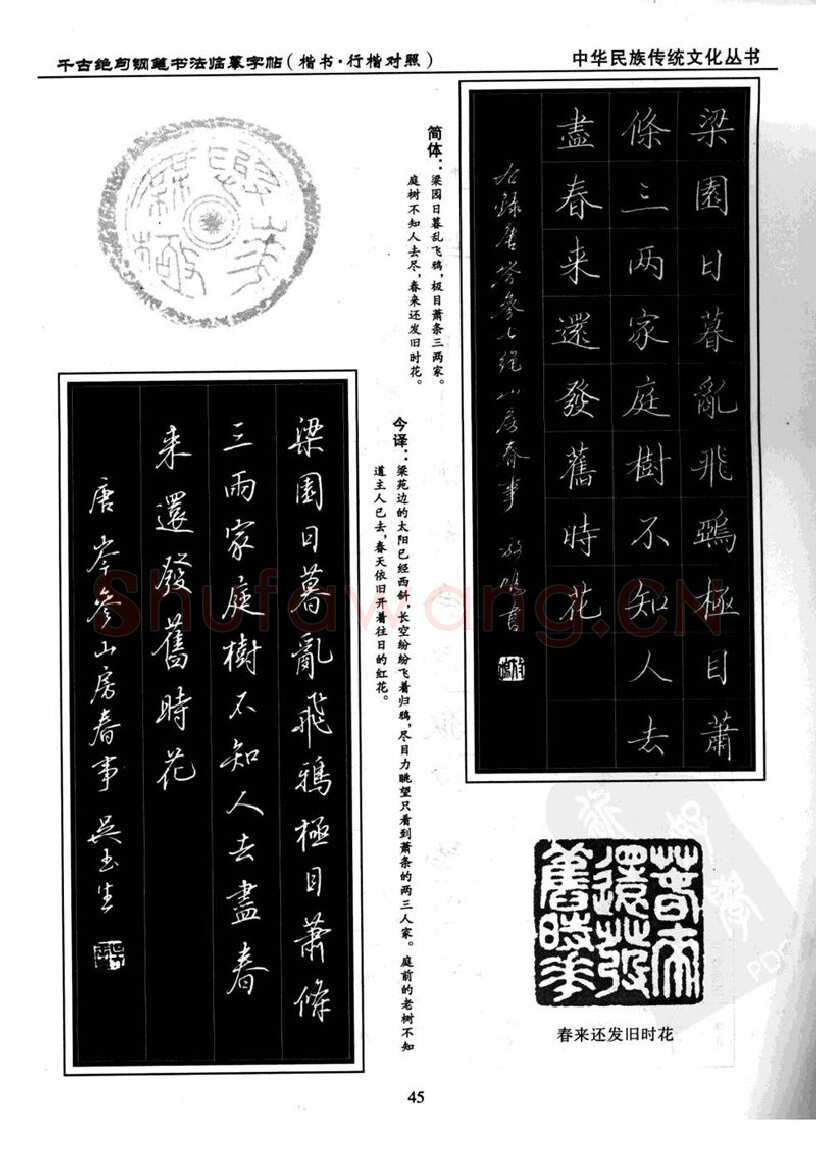 千古绝句钢笔书法临摹字帖（楷书·行楷对照）
中华民族传统文化丛书
梁園日暮亂飛鵶極目蕭
條三两家庭樹不知人去
盡春来還發舊時花
右録唐岑參七绝山房春事
简体：梁园日暮乱飞鸦，极目萧条三两家。
庭树不知人去尽，春来还发旧时花。
今译：梁苑边的太阳已经西斜，长空纷纷飞着归鸦，尽目力眺望只看到萧条的两三人家。庭前的老树不知
道主人已去，春天依旧开着往日的红花。
梁園日暮亂飛鴉極目蕭條
三兩家庭樹不知人去盡春
来還發舊時花
唐岑參山房春事 吴玉生
春来還發舊時花
春来还发旧时花
45
Shufawang.CN
PDG